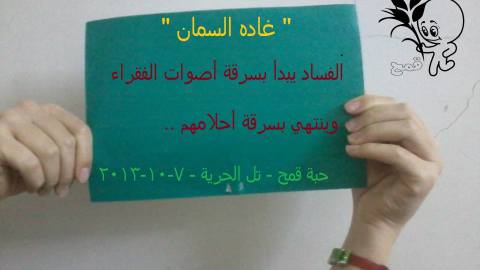 " غاده السمان "
الفساد يبدأ بسرقة أصوات الفقراء
وينتهي بسرقة أحلامهم ..
حبة قمح - تل الحرية - ٧-١٠-٢٠١٣
قمح